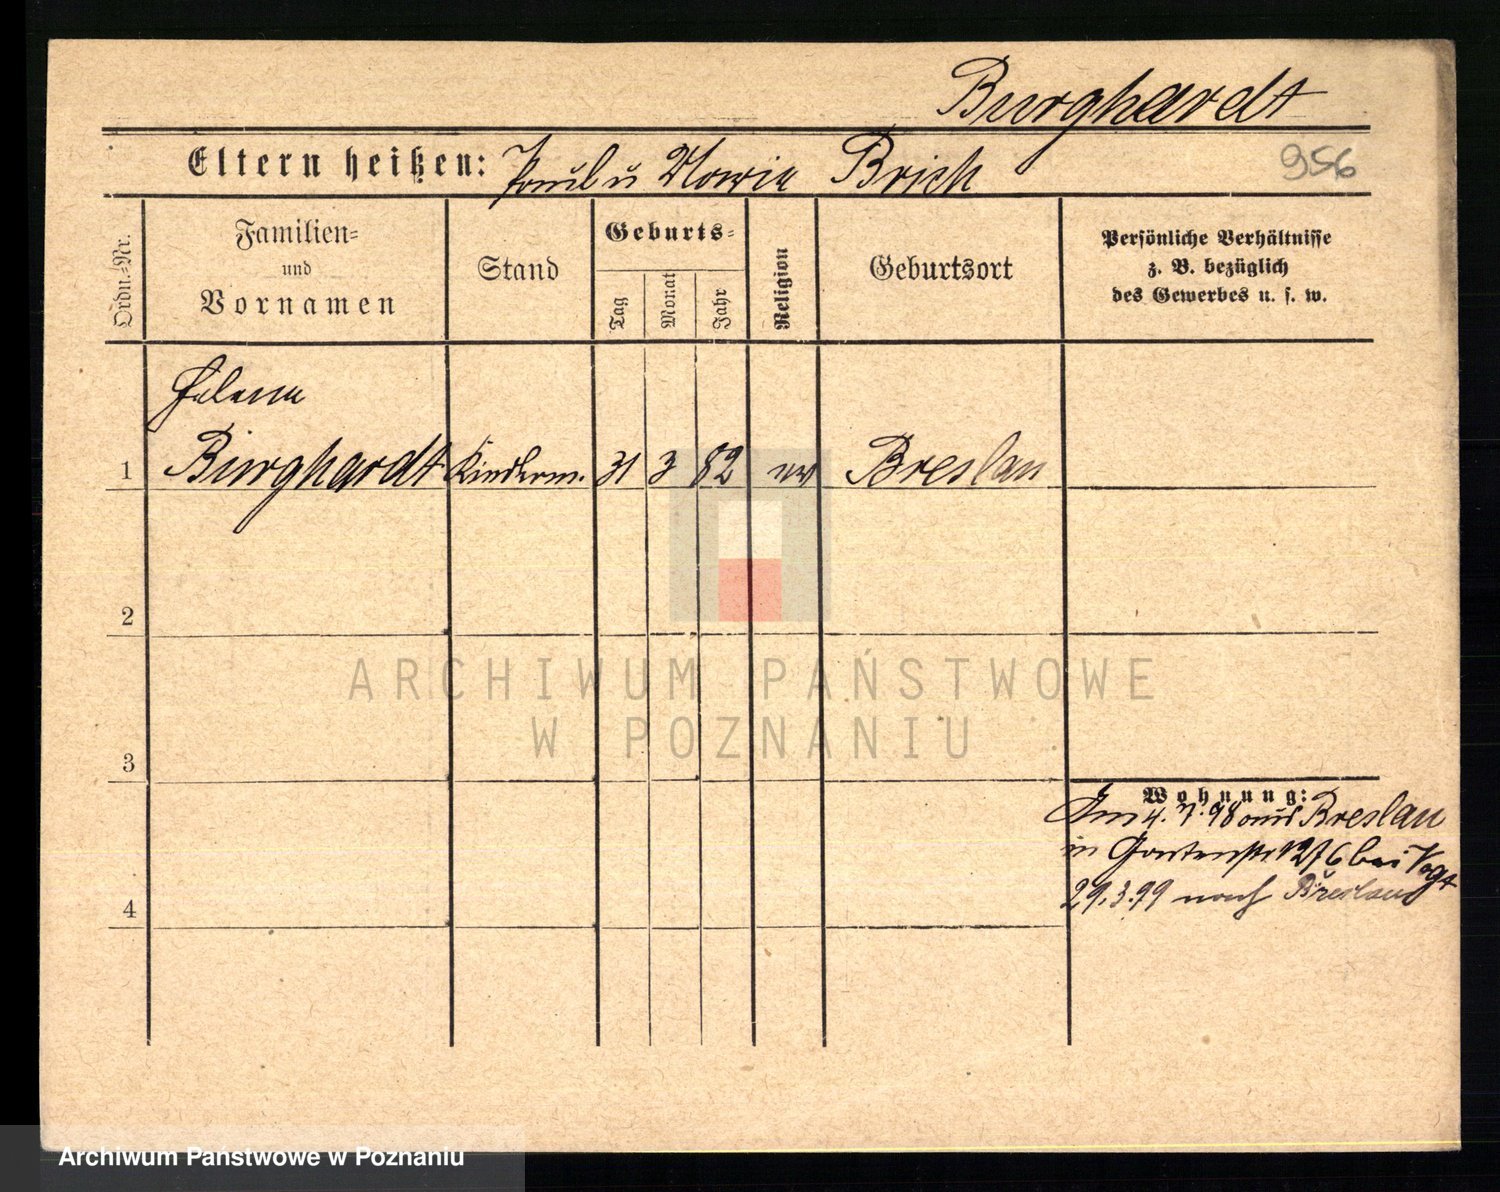 Burghardt
Eltern heißen: Paul u Maria Brish
956
Ordn.-Nr.
Familien-
und
Vornamen
Stand
Geburts-
Tag
Monat
Jahr
Religion
Geburtsort
Persönliche Verhältnisse
z. B. bezüglich
des Gewerbes u. s. w.
Helene
1 Burghardt Kinderm. 31 3 82 ev Breslau
2
ARCHIWUM PAŃSTWOWE
W POZNANIU
3
Wohnung:
Am 4. 7. 98 aus Breslau
in Gartenstr 12 bei Vogt
29.3.99 nach Breslau
4
Archiwum Państwowe w Poznaniu